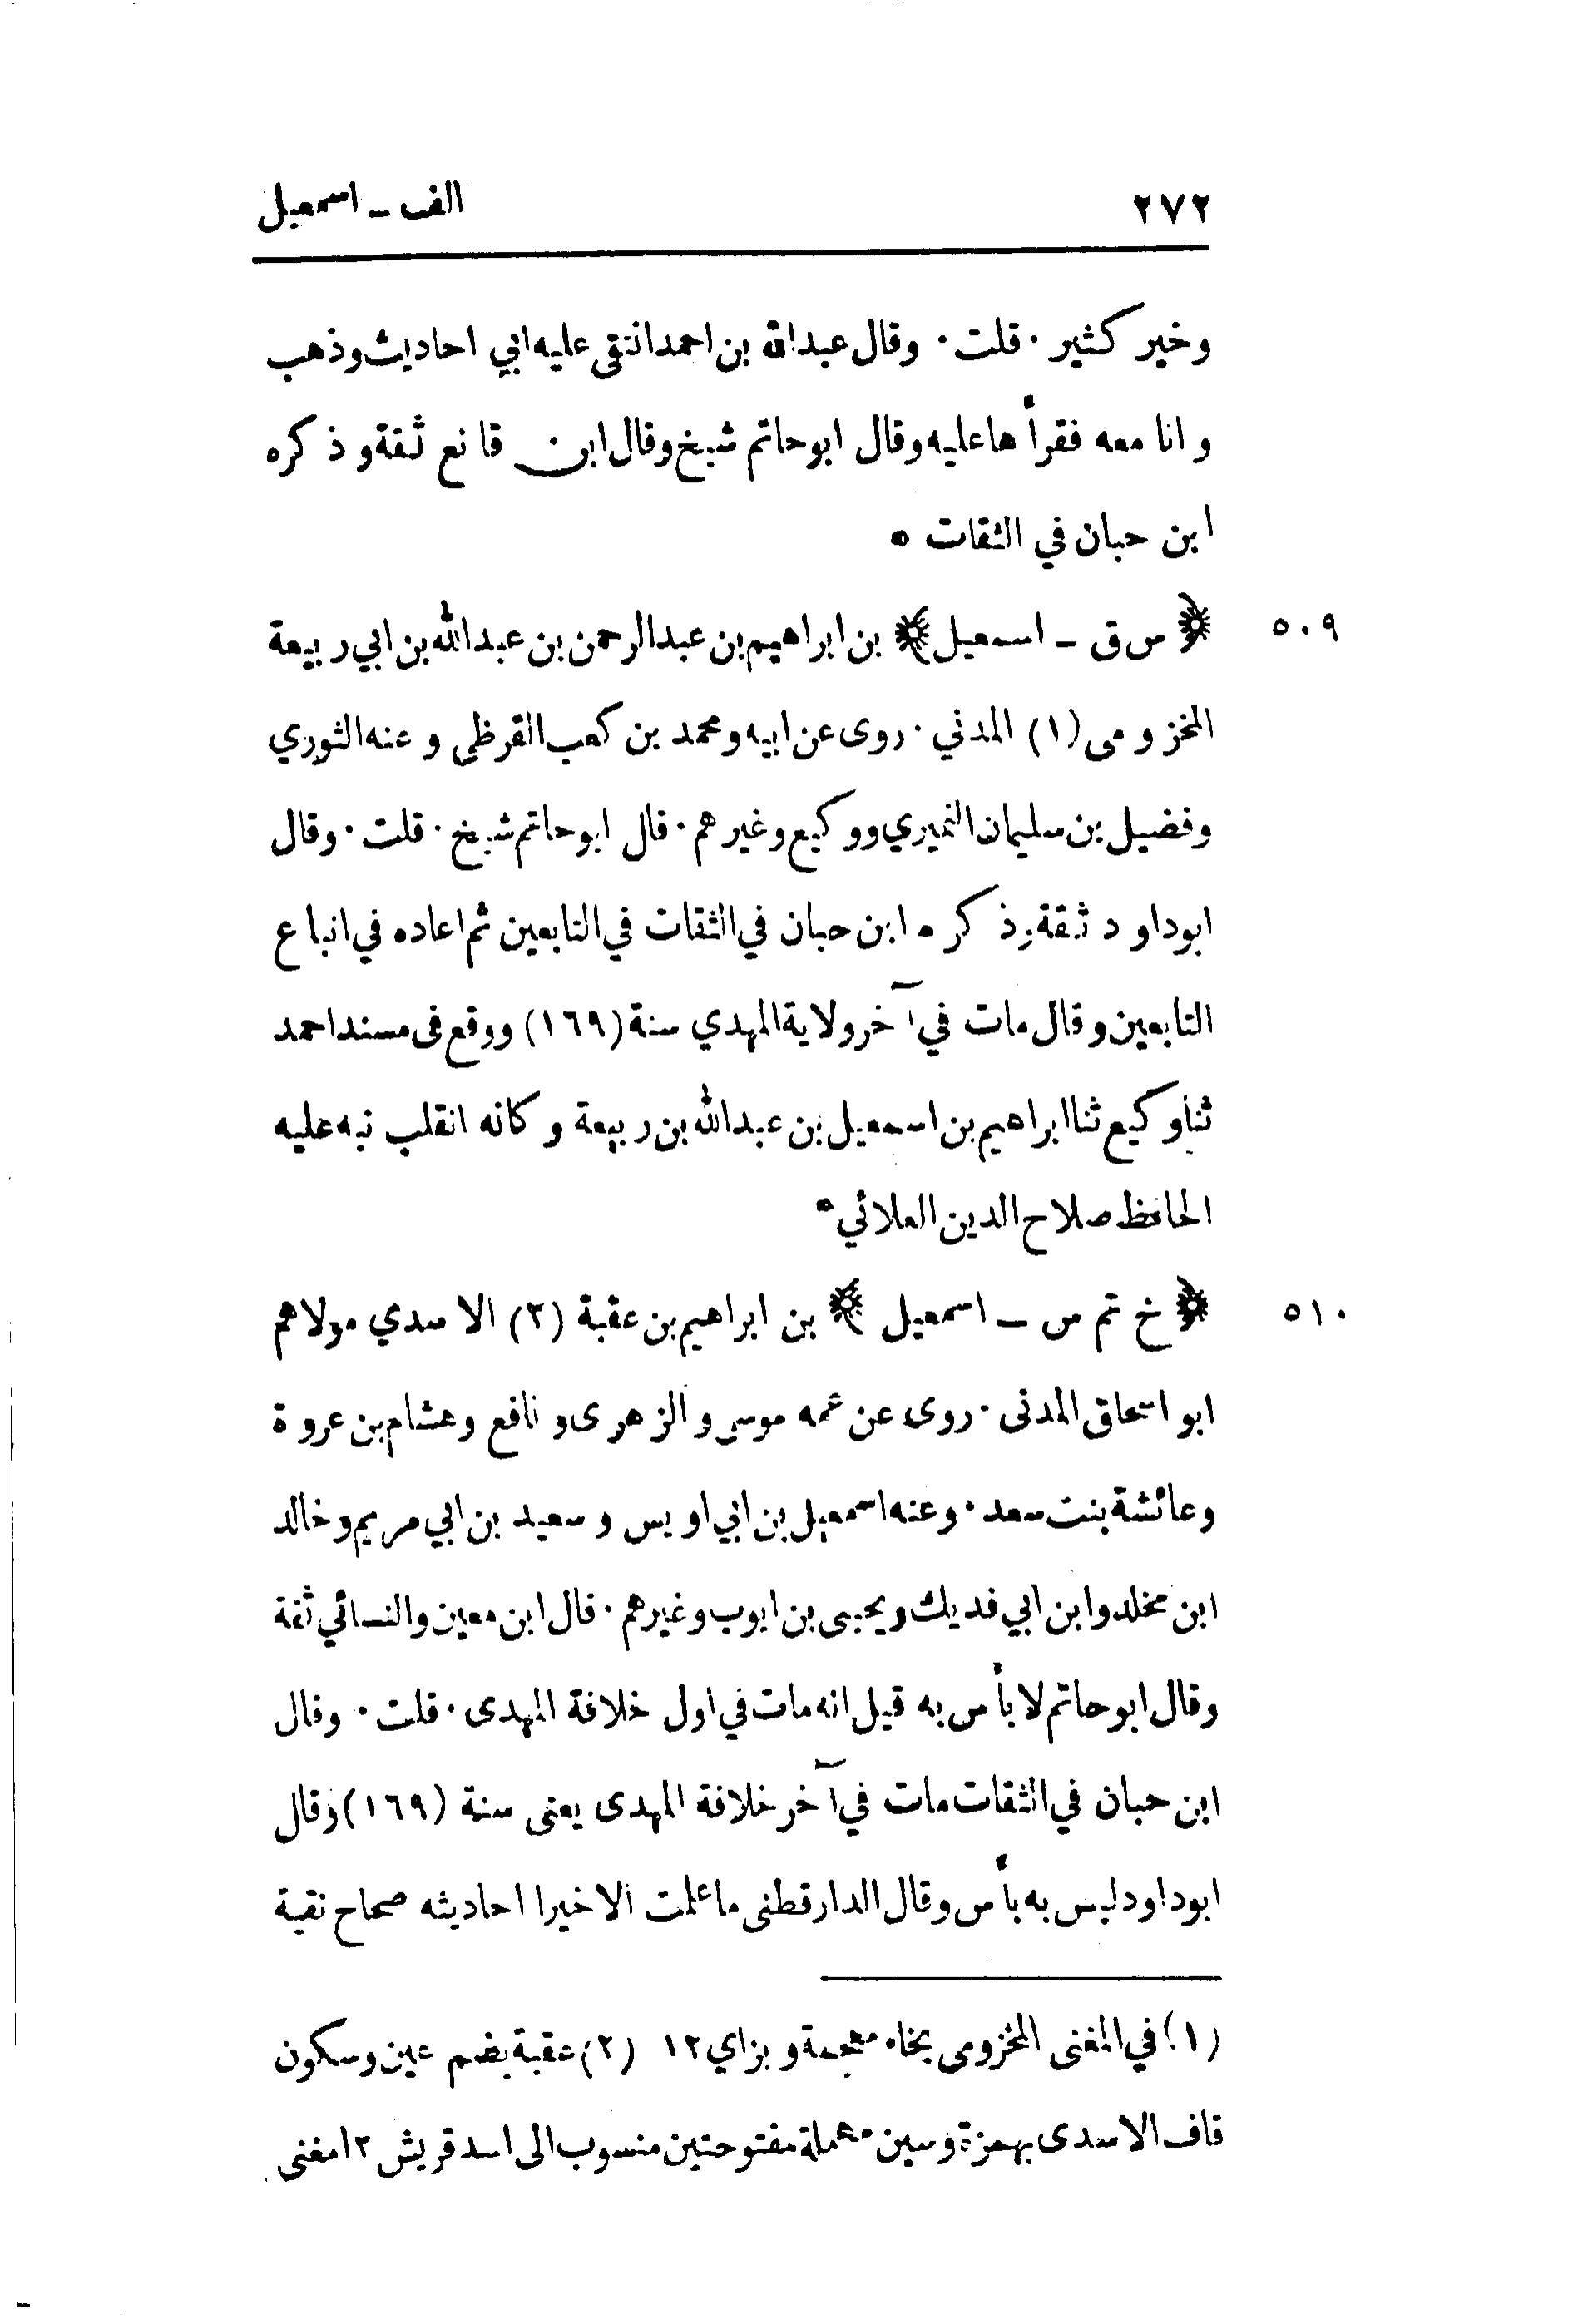 ٢٧٢ الف ــ اسمعيل
وخير كثير · قلت · وقال عبدالله بن احمد انتقى عليه ابي احاديث وذهب
وانا معه فقرأها عليه وقال ابو حاتم شيخ وقال ابن قانع ثقة وذكره
ابن حبان في الثقات ٥
٥٠٩ ﴿ س ق ــ اسمعيل ﴾ بن ابراهيم بن عبدالرحمن بن عبدالله بن ابي ربيعة
المخزومى (١) المدني · روى عن ابيه ومحمد بن كعب القرظي وعنه الثوري
وفضيل بن سليمان النميري ووكيع وغيرهم · قال ابو حاتم شيخ · قلت · وقال
ابوداود ثقة وذكره ابن حبان في الثقات في التابعين ثم اعاده في اتباع
التابعين وقال مات في آخر ولاية المهدي سنة (١٦٩) ووقع فى مسند احمد
ثنا وكيع ثنا ابراهيم بن اسمعيل بن عبدالله بن ربيعة وكانه انقلب نبه عليه
الحافظ صلاح الدين العلائي ٥
٥١٠ ﴿ خ تم س ــ اسمعيل ﴾ بن ابراهيم بن عقبة (٢) الاسدي مولاهم
ابو اسحاق المدنى · روى عن عمه موسى والزهرى ونافع وهشام بن عروة
وعائشة بنت سعد · وعنه اسمعيل بن ابي اويس وسعيد بن ابي مريم وخالد
ابن مخلد وابن ابي فديك ويحيى بن ايوب وغيرهم · قال ابن معين والنسائي ثقة
وقال ابو حاتم لا بأس به قيل انه مات في اول خلافة المهدى · قلت · وقال
ابن حبان في الثقات مات في آخر خلافة المهدى يعنى سنة (١٦٩) وقال
ابوداود ليس به بأس وقال الدارقطنى ما علمت الا خيرا احاديثه صحاح نقية
(١) في المغنى المخزومى بخاء معجمة وبزاي ١٢ (٢) عقبة بضم عين وسكون
قاف الاسدى بهمزة وسين مهملة مفتوحتين منسوب الى اسد قريش ١٢ مغنى